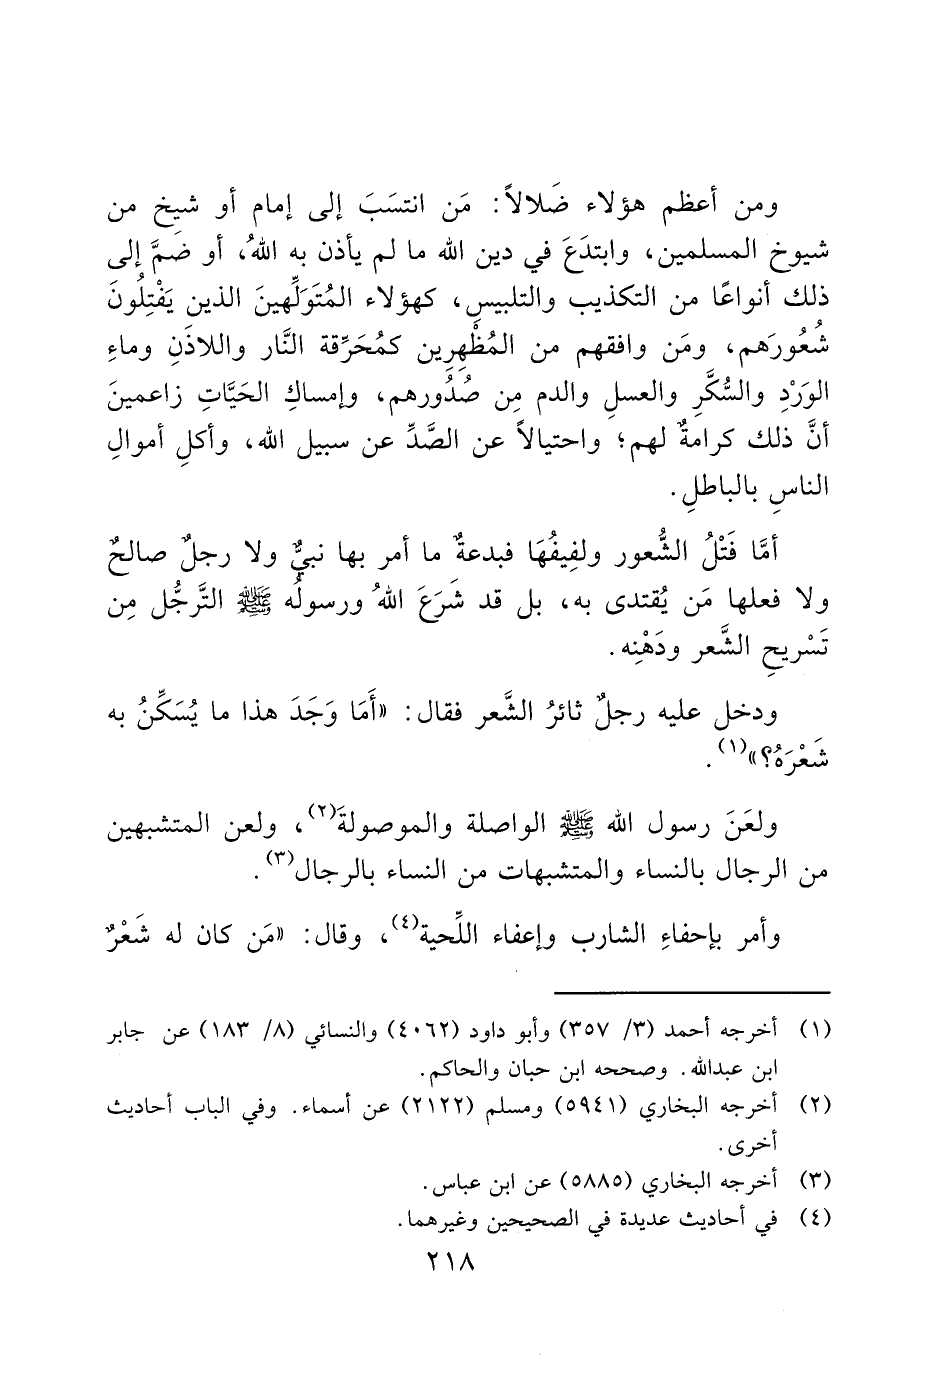 ومن أعظم هؤلاء ضَلالاً: مَن انتسَبَ إلى إمام أو شيخ من
شيوخ المسلمين، وابتدَعَ في دين الله ما لم يأذن به اللهُ، أو ضَمَّ إلى
ذلك أنواعًا من التكذيب والتلبيسِ، كهؤلاء المُتَوَلِّهينَ الذين يَفْتِلُونَ
شُعُورَهم، ومَن وافقهم من المُظْهِرِين كمُحَرِّقة النَّار واللاذَنِ وماءِ
الوَرْدِ والسُّكَّرِ والعسلِ والدم مِن صُدُورهم، وإمساكِ الحَيَّاتِ زاعمينَ
أنَّ ذلك كرامةٌ لهم؛ واحتيالاً عن الصَّدِّ عن سبيل الله، وأكلِ أموالِ
الناسِ بالباطلِ.
أمَّا فَتْلُ الشُّعور ولفِيفُهَا فبدعةٌ ما أمر بها نبيٌّ ولا رجلٌ صالحٌ
ولا فعلها مَن يُقتدى به، بل قد شَرَعَ اللهُ ورسولُه ﷺ التَّرجُّل مِن
تَسْريحِ الشَّعر ودَهْنِه.
ودخل عليه رجلٌ ثائرُ الشَّعر فقال: «أَمَا وَجَدَ هذا ما يُسَكِّنُ به
شَعْرَهُ؟»(١).
ولعَنَ رسول الله ﷺ الواصلة والموصولةَ(٢)، ولعن المتشبهين
من الرجال بالنساء والمتشبهات من النساء بالرجال(٣).
وأمر بإحفاءِ الشارب وإعفاء اللِّحية(٤)، وقال: «مَن كان له شَعْرٌ
(١) أخرجه أحمد (٣/ ٣٥٧) وأبو داود (٤٠٦٢) والنسائي (٨/ ١٨٣) عن جابر
ابن عبدالله. وصححه ابن حبان والحاكم.
(٢) أخرجه البخاري (٥٩٤١) ومسلم (٢١٢٢) عن أسماء. وفي الباب أحاديث
أخرى.
(٣) أخرجه البخاري (٥٨٨٥) عن ابن عباس.
(٤) في أحاديث عديدة في الصحيحين وغيرهما.
٢١٨